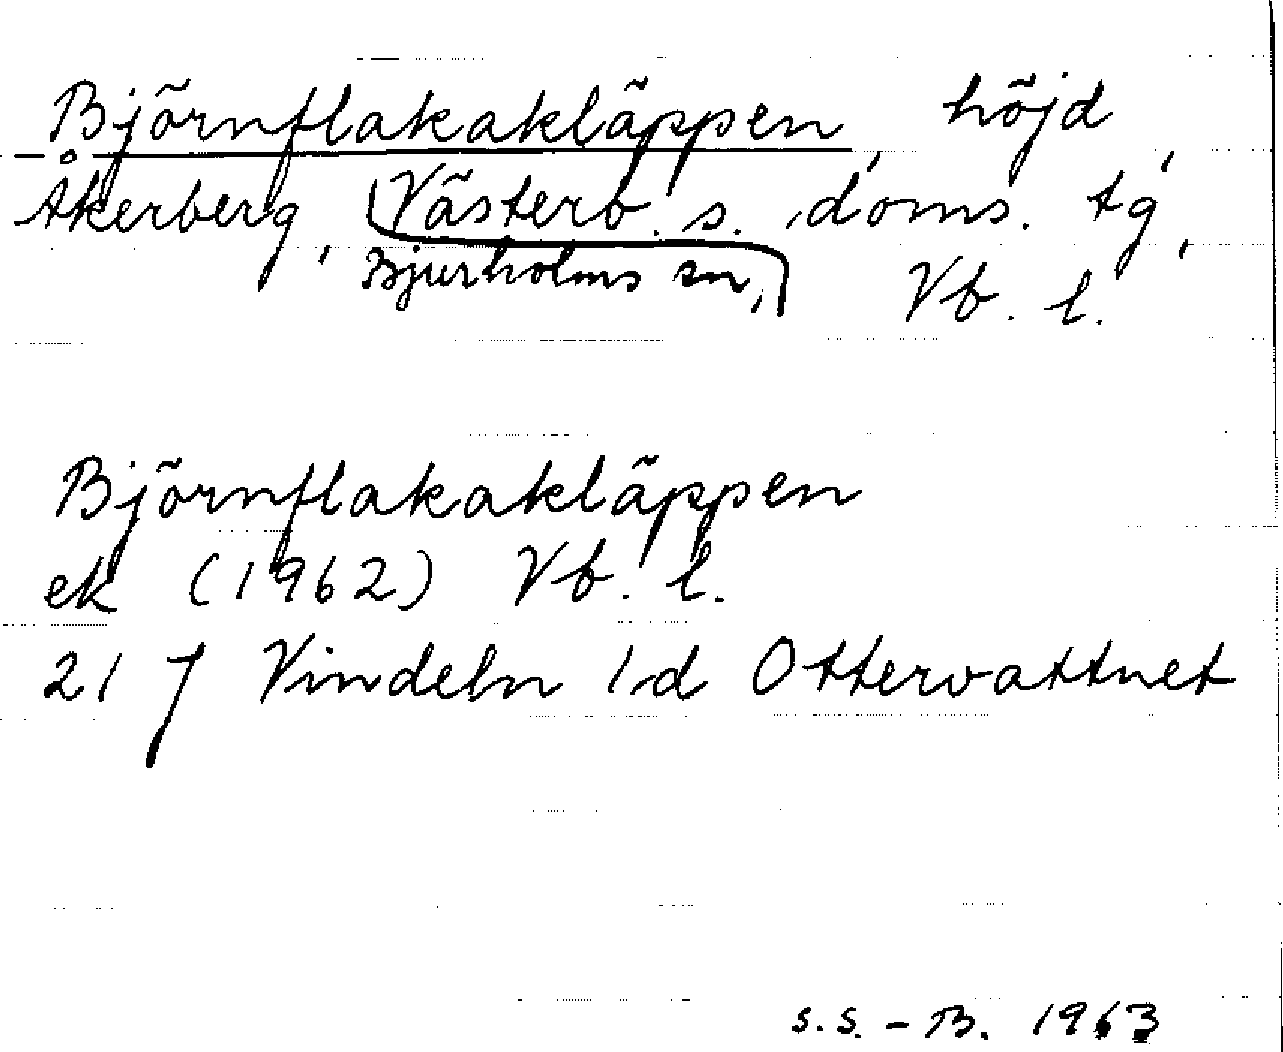 Björnflakakläppen, höjd,
Åkerberg, Västerb. s. doms. tg,
Bjurholms sn, Vb. l.
Björnflakakläppen
ek (1962) Vb. l.
21 J Vindeln 1d Ottervattnet
s.s.-B. 1963